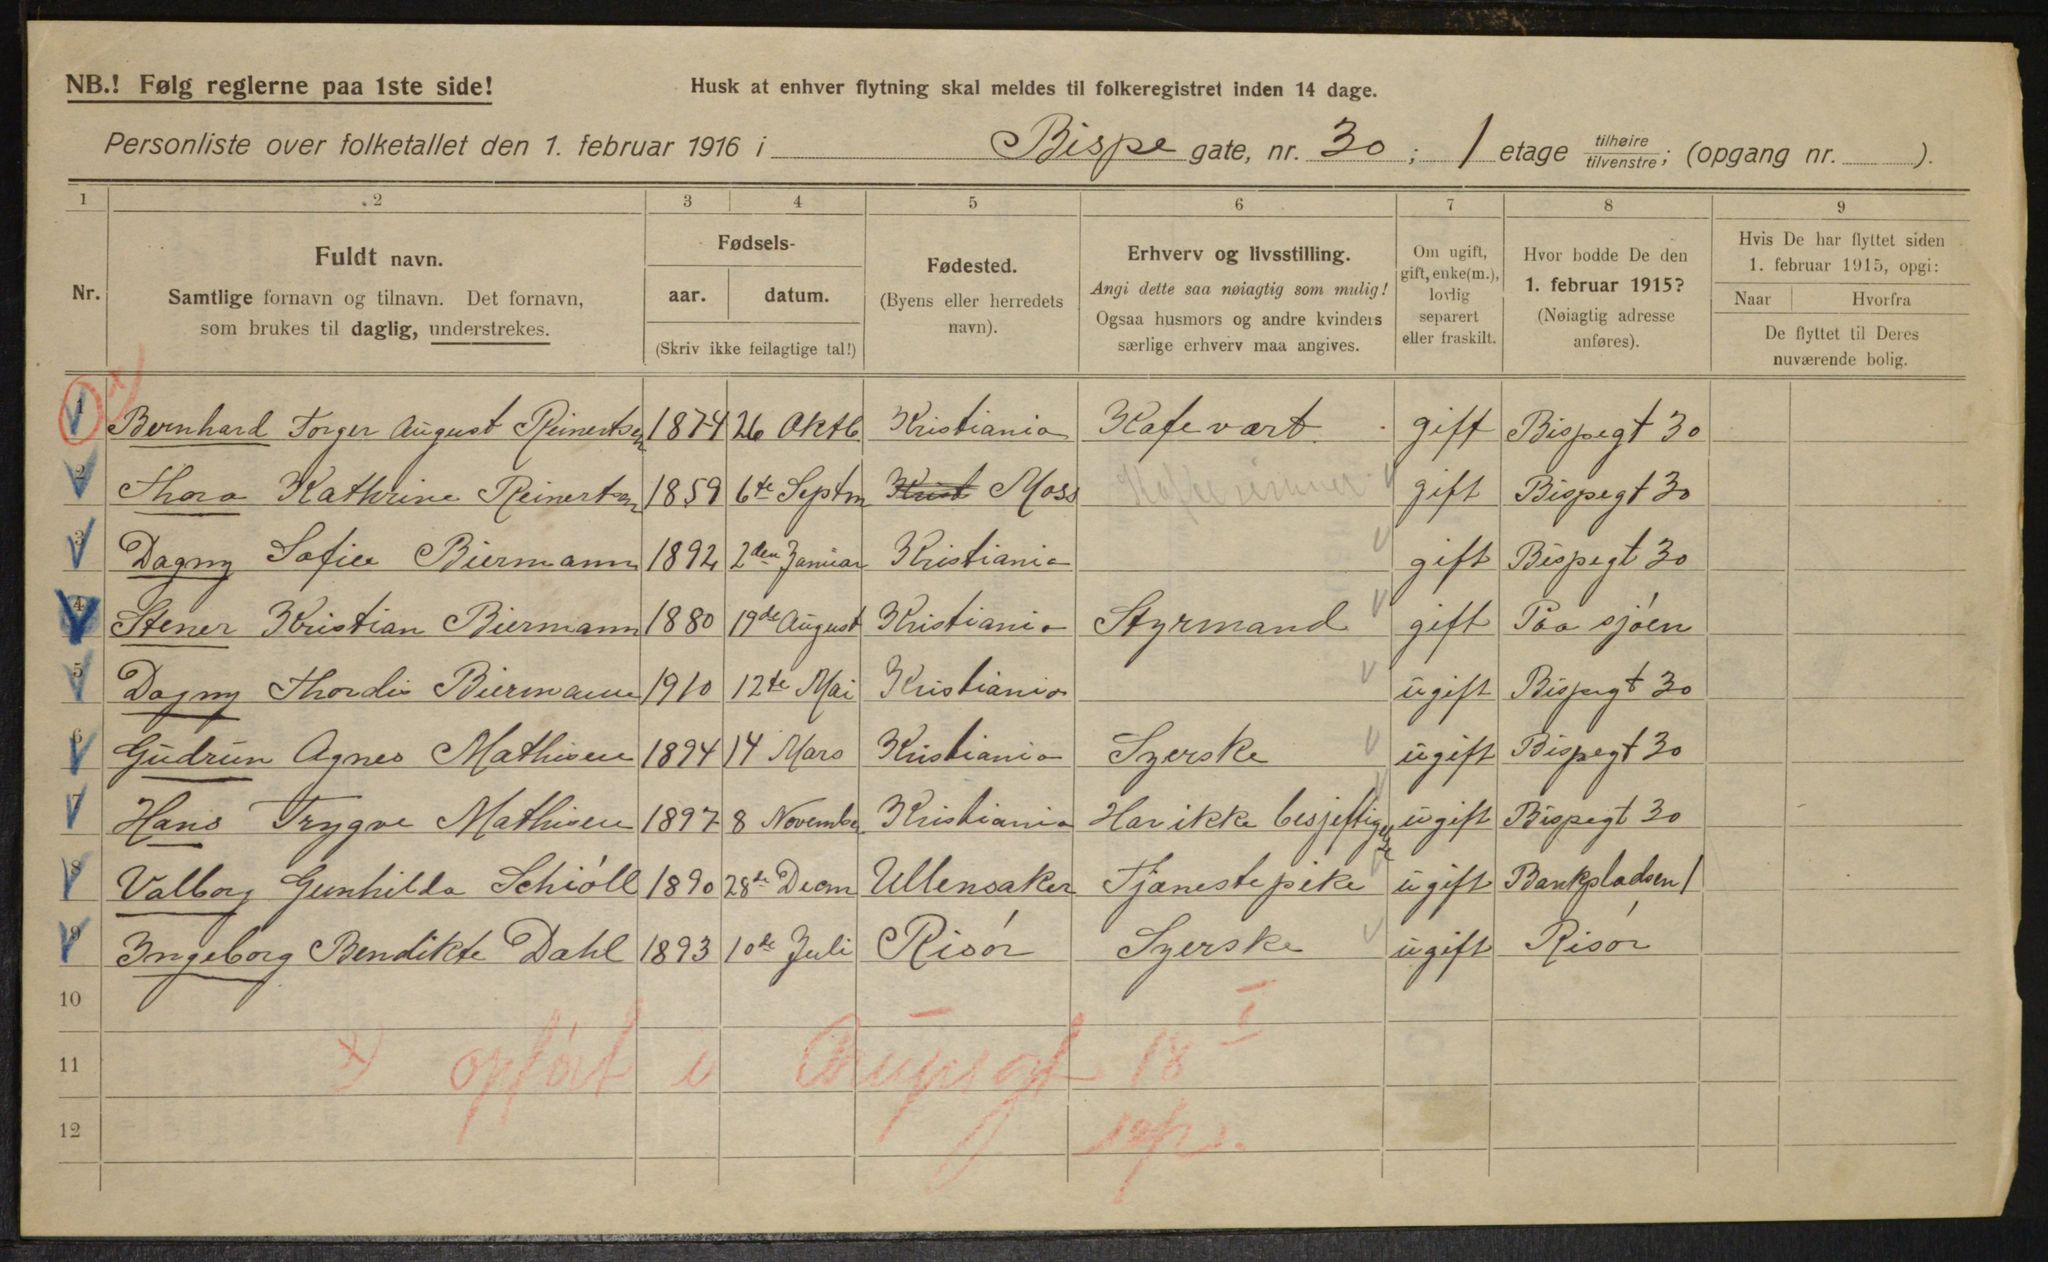 NB.! Følg reglerne paa 1ste side!
Husk at enhver flytning skal meldes til folkeregistret inden 14 dage.
Personliste over folketallet den 1. februar 1916 i Bispe gate, nr. 30 ; 1 etage tilhøire/tilvenstre; (opgang nr. ).
1 2 3 4 5 6 7 8 9
Nr.
Fuldt navn.
Samtlige fornavn og tilnavn. Det fornavn,
som brukes til daglig, understrekes.
Fødsels-
aar. datum.
(Skriv ikke feilagtige tal!)
Fødested.
(Byens eller herredets
navn).
Erhverv og livsstilling.
Angi dette saa nøiagtig som mulig!
Ogsaa husmors og andre kvinders
særlige erhverv maa angives.
Om ugift,
gift, enke(m.),
lovlig
separert
eller fraskilt.
Hvor bodde De den
1. februar 1915?
(Nøiagtig adresse
anføres).
Hvis De har flyttet siden
1. februar 1915, opgi:
Naar Hvorfra
De flyttet til Deres
nuværende bolig.
1 Bernhard Torger August Reinertsen 1874 26 Oktb Kristiania Kafevært gift Bispegt 30
2 Thora Kathrine Reinertsen 1859 6te Septm Krist Moss gift Bispegt 30
3 Dagny Sofie Biermann 1892 2den Januar Kristiania gift Bispegt 30
4 Stener Kristian Biermann 1880 19de August Kristiania Styrmand gift Paa sjøen
5 Dagny Thordis Biermann 1910 12te Mai Kristiania ugift Bispegt 30
6 Gudrun Agnes Mathisen 1894 14 Mars Kristiania Syerske ugift Bispegt 30
7 Hans Trygve Mathisen 1897 8 November Kristiania Har ikke besjeftigelse ugift Bispegt 30
8 Valborg Gunhilda Schiöll 1890 28de Decm Ullensaker Tjænestepike ugift Bankpladsen 1
9 Ingeborg Bendikte Dahl 1893 10de Juli Risör Syerske ugift Risör
10
11 x) opført i 18 I
12